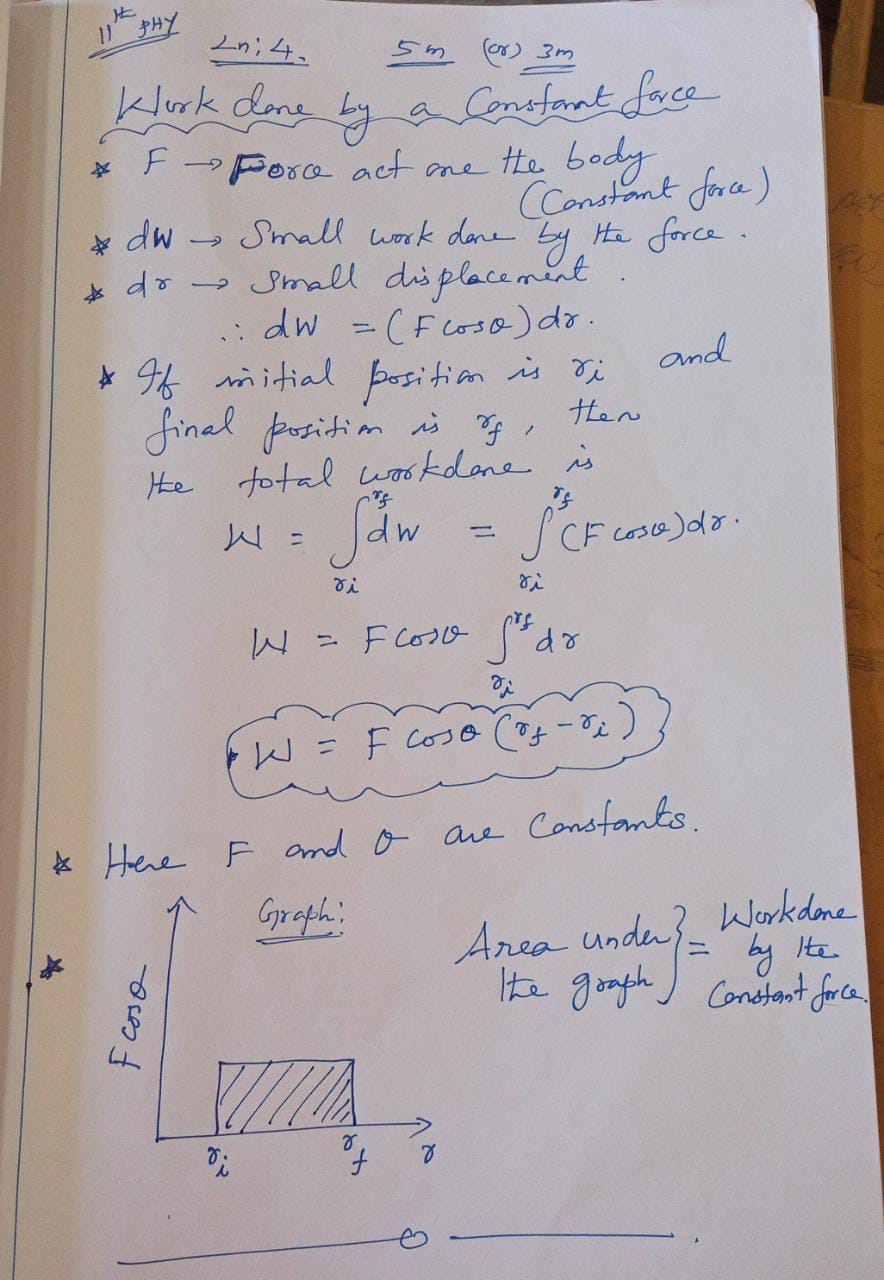 11th PHY
Ln: 4. 5m (or) 3m
Work done by a Constant force
* F → Force act one the body
(Constant force)
* dW → Small work done by the force.
* dr → Small displacement.
∴ dW = (F cosθ) dr.
* If initial position is ri and
final position is rf, then
the total workdone is
W = ∫ri^rf dW = ∫ri^rf (F cosθ) dr.
W = F cosθ ∫ri^rf dr
W = F cosθ (rf - ri)
* Here F and θ are Constants.
* Graph:
Area under } = Workdone
the graph by the
Constant force.
F cosθ
ri rf r